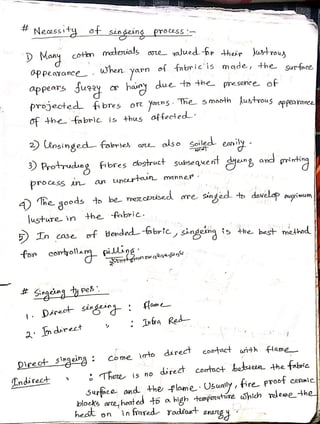 # Necessity of singeing process :-
1) Many cotton materials are valued for their lustrous
appearance. When yarn of fabric is made, the surface
appears fuzzy or hairy due to the presence of
projected fibres or yarns. The smooth lustrous appearance
of the fabric is thus affected.
2) Unsinged fabrics are also soiled easily.
3) Protruding fibres obstruct subsequent dyeing and printing
process in an uncertain manner.
4) The goods to be mercerised are singed to develop maximum
lusture in the fabric.
5) In case of blended fabric, singeing is the best method
for controlling pilling.
# Singeing types:
1. Direct singeing : flame
2. Indirect " : Infra Red
Direct singeing : come into direct contact with flame
Indirect " : There is no direct contact between the fabric
surface and the flame. Usually, fire proof ceramic
blocks are heated to a high temperature which release the
heat on infrared radiant energy.